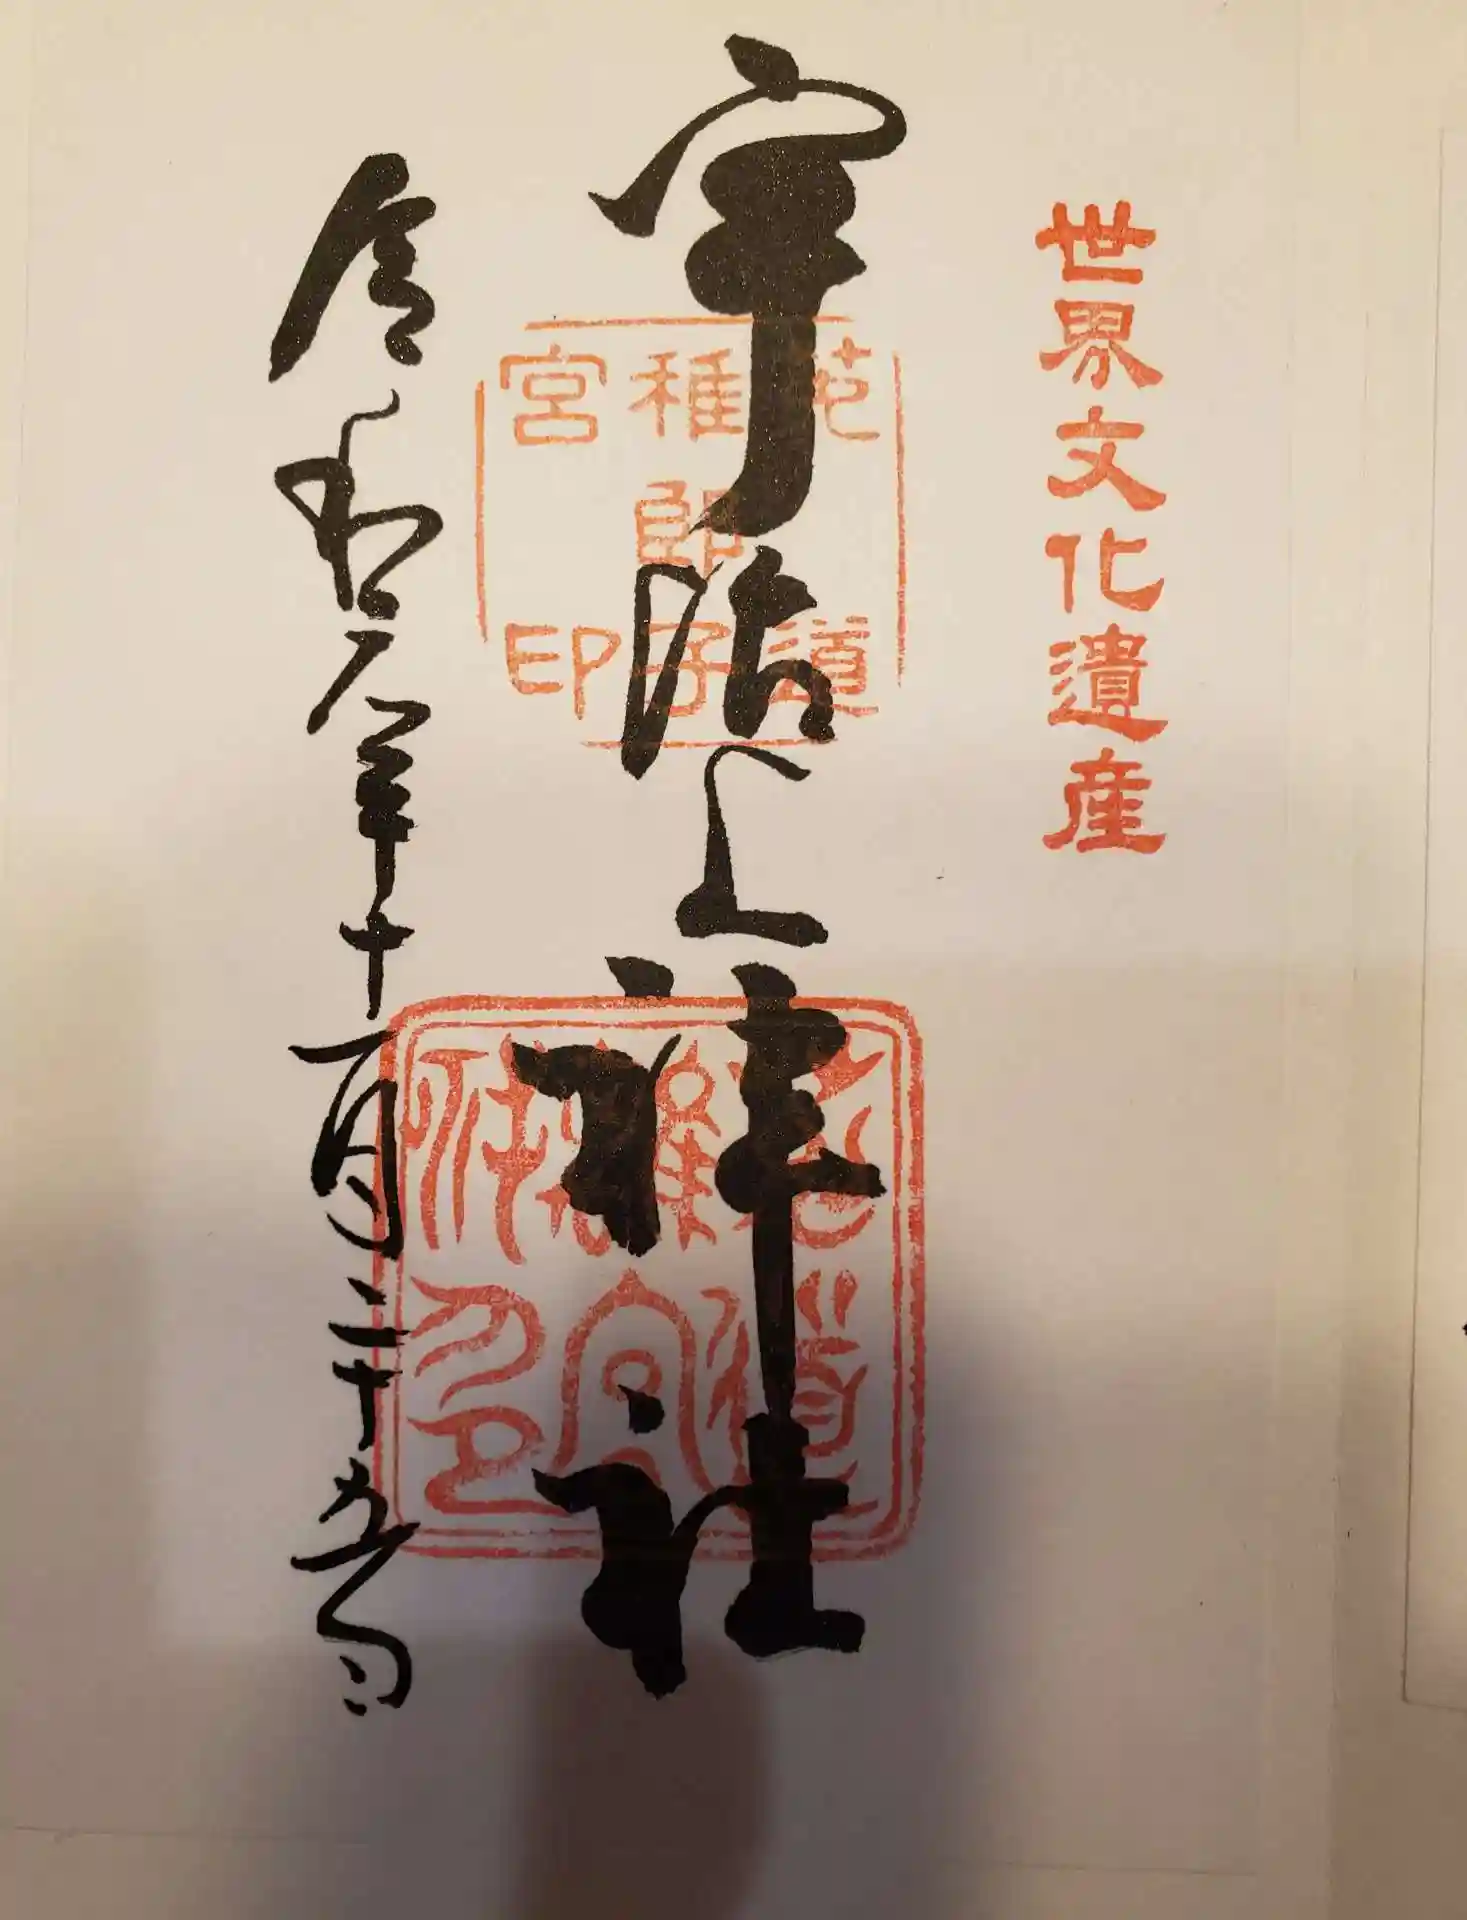 世界文化遺産
宇治上神社
菟道
稚郎子
宮印
令和元年十一月二十五日